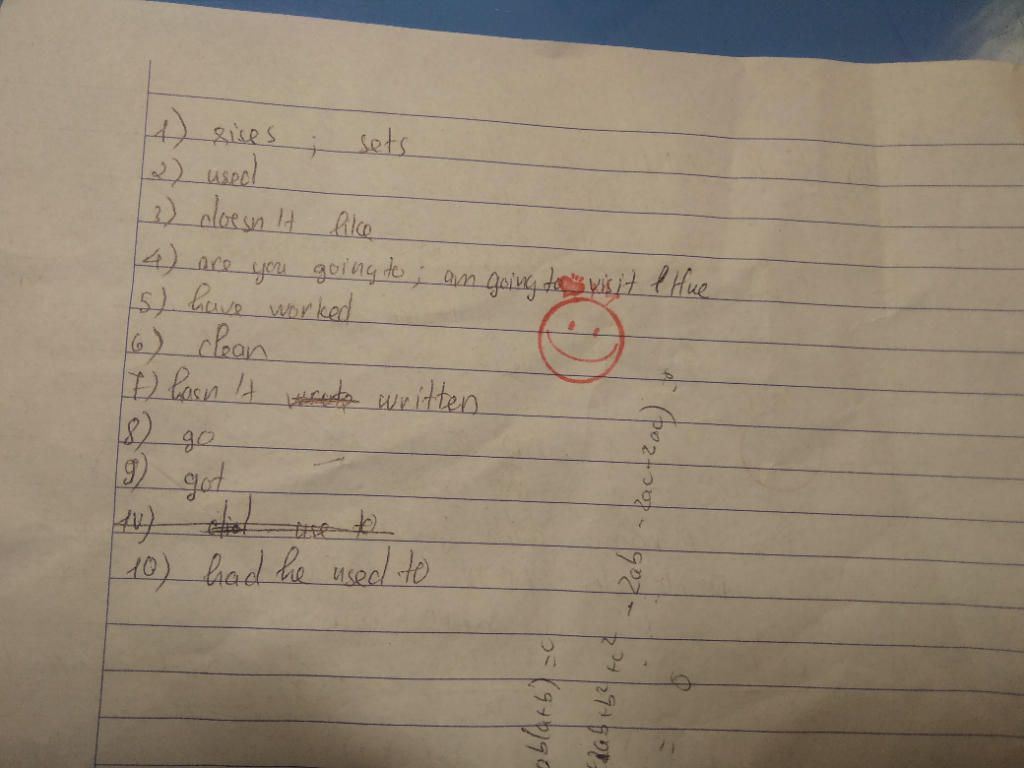 1) rises ; sets
2) used
3) doesn't like
4) are you going to ; am going to visit Hue
5) have worked
6) clean
7) hasn't written
8) go
9) got
10) had he used to
ab(a+b) = c
2ab + b² + c² - 2ab - 2ac + 2ac)
= 0